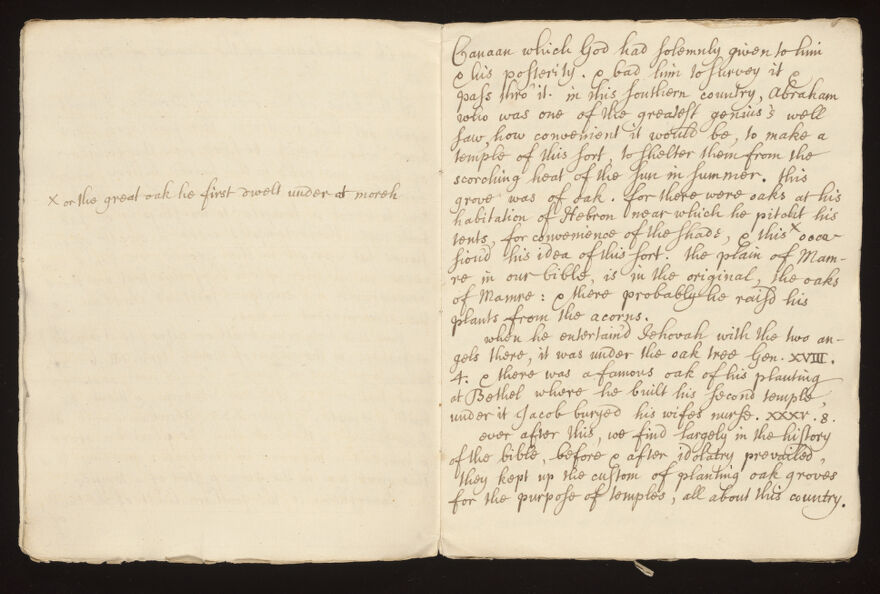 x or the great oak he first dwelt under at moreh
Canaan which God had solemnly given to him
& his posterity. & bad him to survey it &
pass thro' it. in this southern country, Abraham
who was one of the greatest genius's well
saw, how convenient it would be, to make a
temple of this sort, to shelter them from the
scorching heat of the sun in summer. this
grove was of oak. for there were oaks at his
habitation of Hebron near which he pitcht his
tents, for convenience of the shade, & this x occa
siond his idea of this sort. the plain of Mam-
re in our bible, is in the original, the oaks
of Mamre: & there probably he raisd his
plants from the acorns.
when he entertain'd Jehovah with the two an-
gels there, it was under the oak tree Gen. XVIII.
4. & there was a famous oak of his planting
at Bethel where he built his second temple,
under it Jacob buryed his wifes nurse. XXXV. 8.
ever after this, we find largely in the history
of the bible, before & after idolatry prevailed,
they kept up the custom of planting oak groves
for the purpose of temples, all about this country.